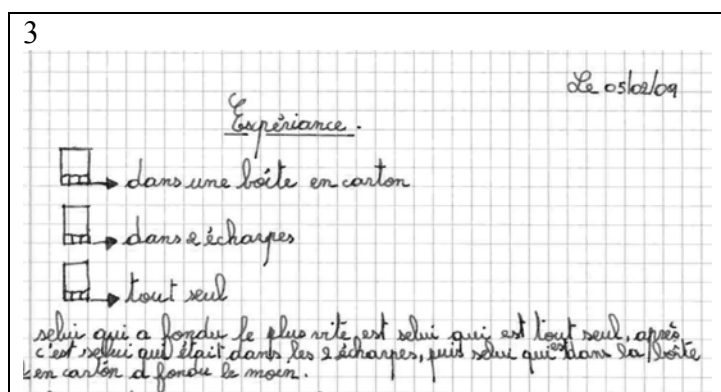 3
Le 05/02/09
Expériance.
dans une boîte en carton
dans 2 écharpes
tout seul
selui qui a fondu le plus vite est selui qui est tout seul, après
c'est selui qui était dans les 2 écharpes, puis selui qui est dans la boîte
en carton a fondu le moin.